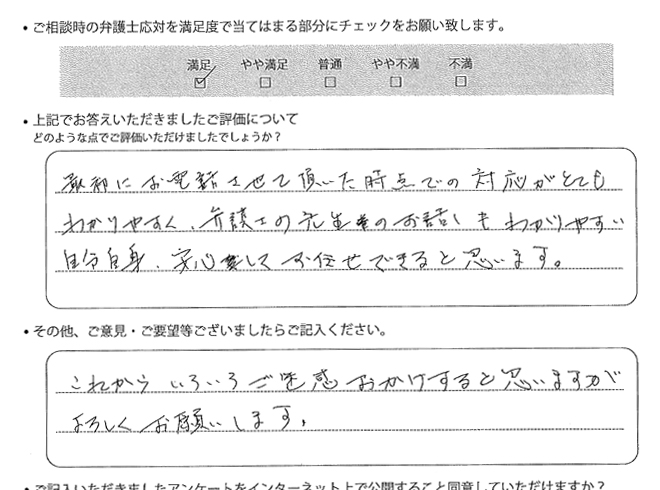 ・ご相談時の弁護士応対を満足度で当てはまる部分にチェックをお願い致します。
満足 やや満足 普通 やや不満 不満
☑ □ □ □ □
・上記でお答えいただきましたご評価について
どのような点でご評価いただけましたでしょうか？
最初にお電話させて頂いた時点での対応がとても
わかりやすく、弁護士の先生のお話しもわかりやすい
自分自身、安心してお任せできると思います。
・その他、ご意見・ご要望等ございましたらご記入ください。
これからいろいろご迷惑おかけすると思いますが
よろしくお願いします。
・ご記入いただきましたアンケートをインターネット上で公開すること同意していただけますか？